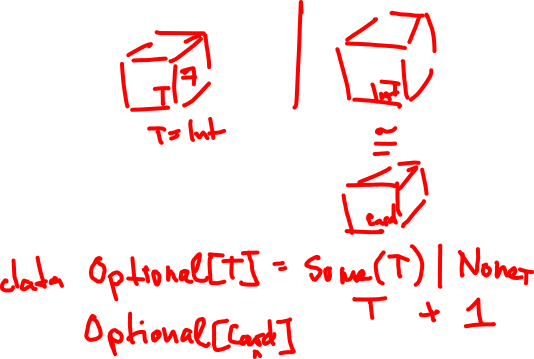 T 7
T = Int
Int
≅
Card
data Optional[T] = Some(T) | None_T
T + 1
Optional[Card]